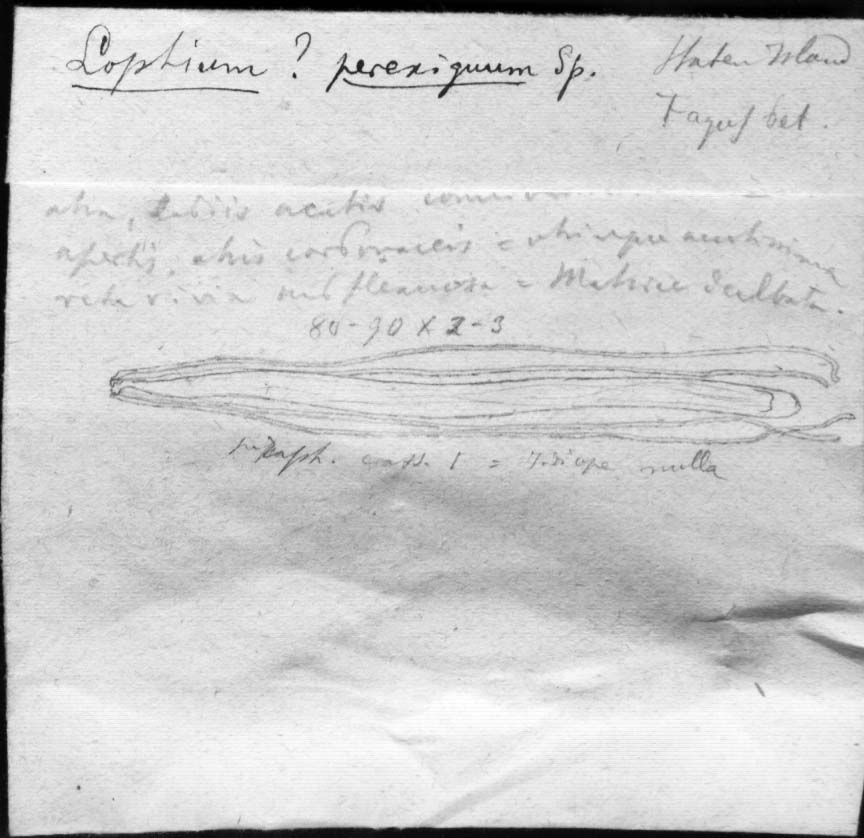 Lophium ? perexiguum Sp.
Staten Island
Fagus bet.
atra, labiis acutis
apertis, atris carbonaceis = utrinque acutissima
recta v. vix subflexuosa = Matrice dealbata.
80-90 x 2-3
paraph. crass. 1 = nulla